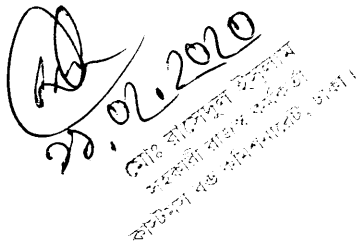 ২৯.০২.2020
মোঃ রাসেদুল ইসলাম
সহকারী রাজস্ব কর্মকর্তা
কাস্টমস বন্ড কমিশনারেট, ঢাকা।